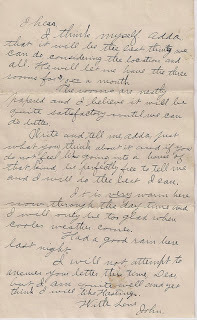 I hear,
I think myself Adda
that it will be the best thing we
can do considering the location and
all. He will let me have the three
rooms for a month
The rooms are neatly
papered and I believe it will be
quite satisfactory until we can
do better.
Write and tell me Adda just
what you think about it and if you
do not feel like going into a house of
that kind be perfectly free to tell me
and I will do the best I can.
It is very warm here
now through the day time and
I will only be too glad when
cooler weather comes.
Had a good rain here
last night.
I will not attempt to
answer your letter this time, Dear
but I am quite well and yet
think I will like Hastings.
With Love
John.